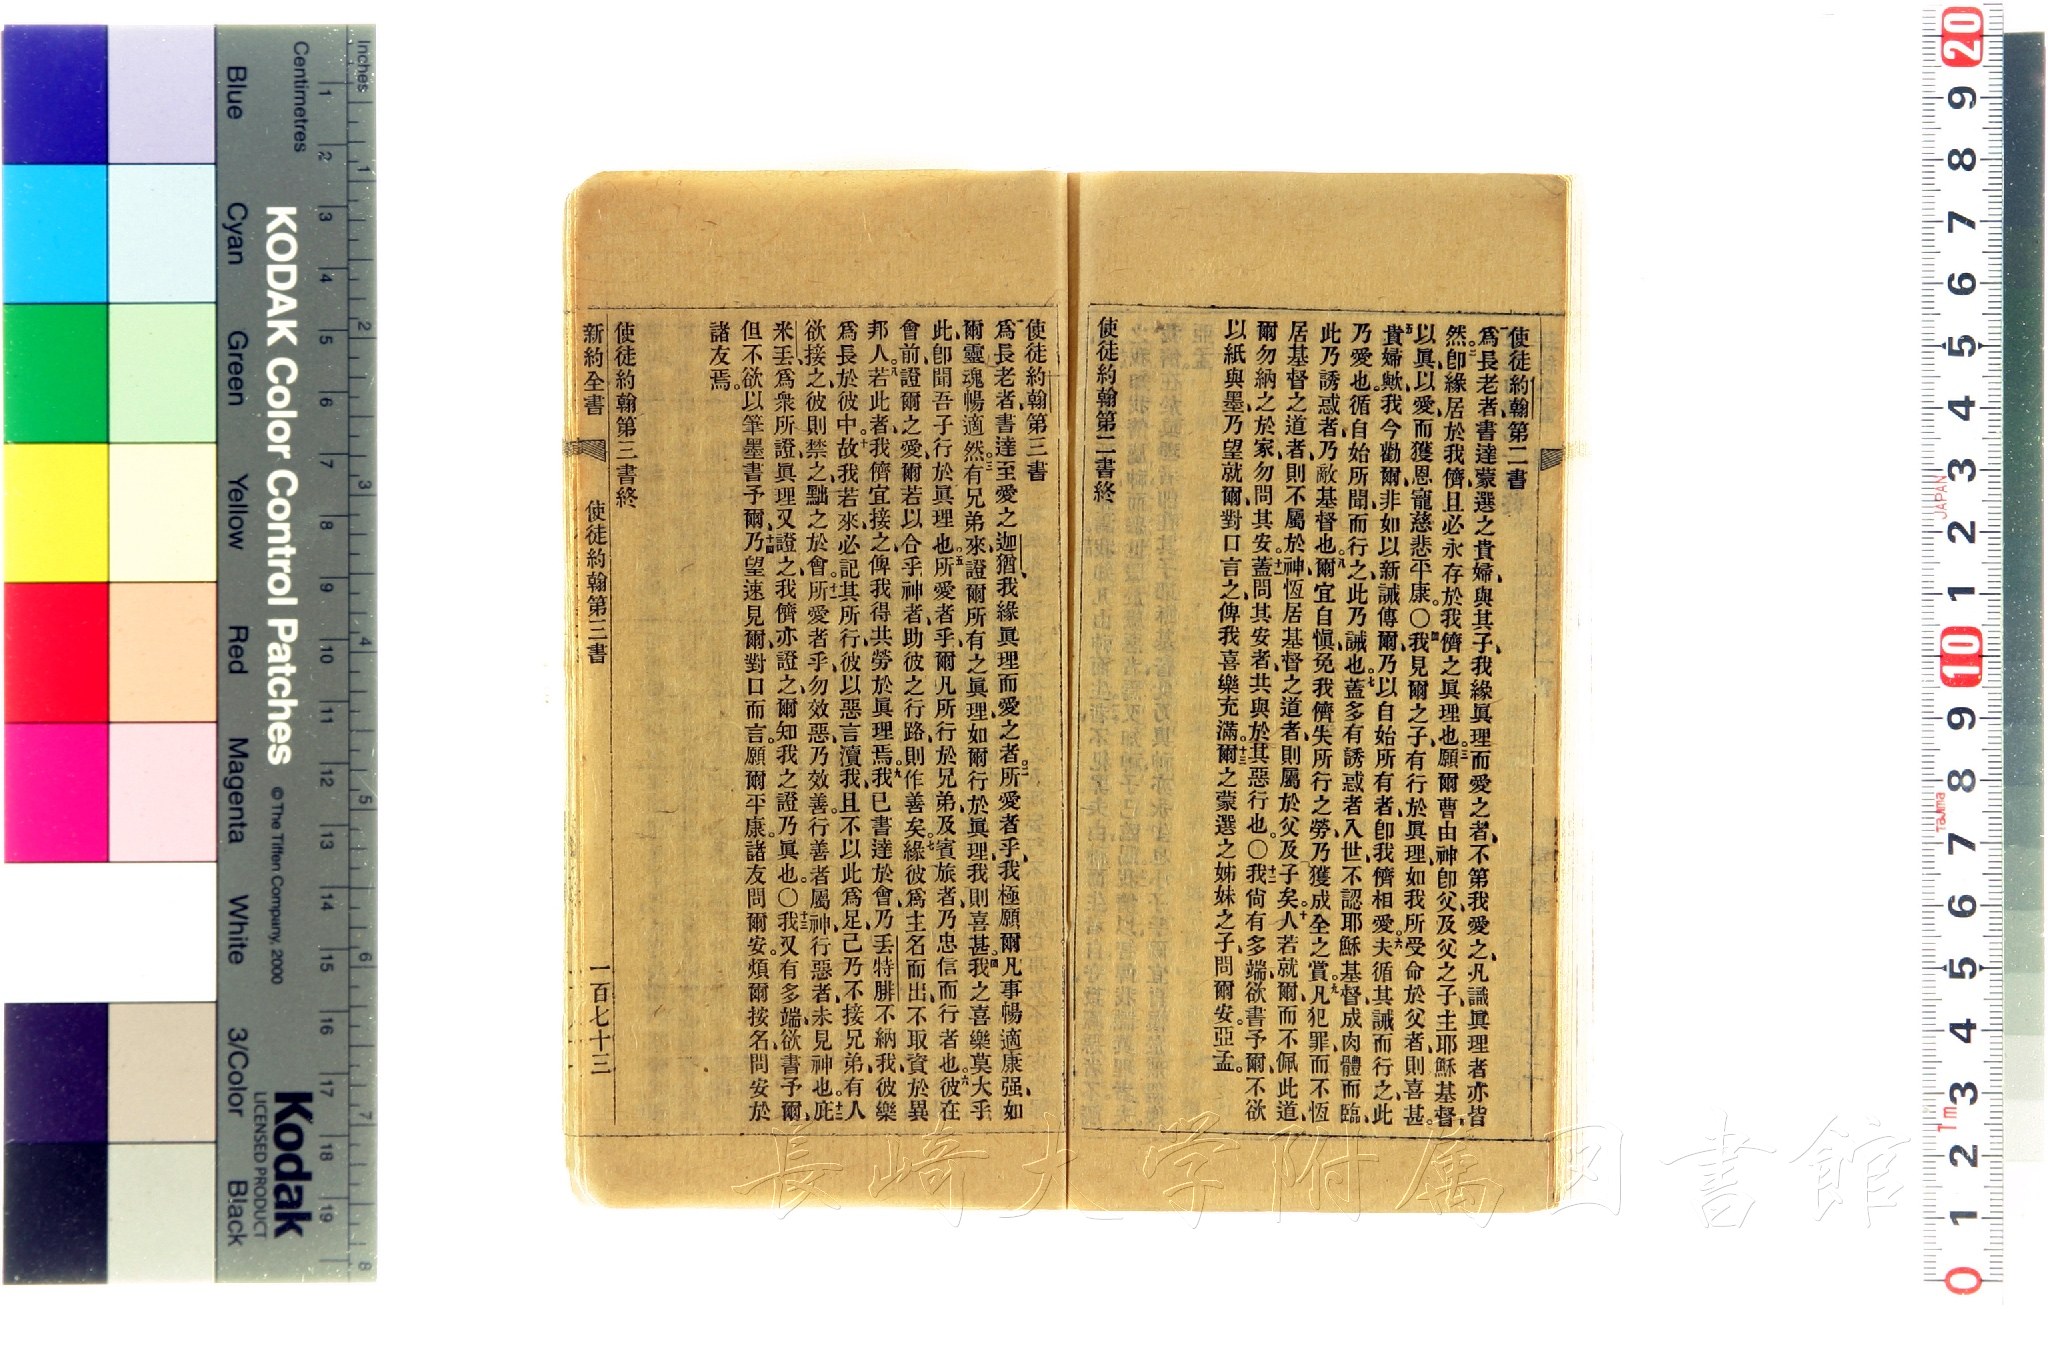 使徒約翰第二書
爲長老者書達蒙選之貴婦與其子我緣眞理而愛之者不第我愛之凡識眞理者亦皆
然卽緣居於我儕且必永存於我儕之眞理也願爾曹由神卽父及父之子主耶穌基督
以眞以愛而獲恩寵慈悲平康○我見爾之子有行於眞理如我所受命於父者則喜甚
貴婦歟我今勸爾非如以新誡傳爾乃以自始所有者卽我儕相愛夫循其誡而行之此
乃愛也循自始所聞而行之此乃誡也蓋多有誘惑者入世不認耶穌基督成肉體而臨
此乃誘惑者乃敵基督也爾宜自愼免我儕失所行之勞乃獲成全之賞凡犯罪而不恆
居基督之道者則不屬於神恆居基督之道者則屬於父及子矣人若就爾而不佩此道
爾勿納之於家勿問其安蓋問其安者共與於其惡行也○我尙有多端欲書予爾不欲
以紙與墨乃望就爾對口言之俾我喜樂充滿爾之蒙選之姊妹之子問爾安亞孟
使徒約翰第二書終
使徒約翰第三書
爲長老者書達至愛之迦猶我緣眞理而愛之者所愛者乎我極願爾凡事暢適康强如
爾靈魂暢適然有兄弟來證爾所有之眞理如爾行於眞理我則喜甚我之喜樂莫大乎
此卽聞吾子行於眞理也所愛者乎爾凡所行於兄弟及賓旅者乃忠信而行者也彼在
會前證爾之愛爾若以合乎神者助彼之行路則作善矣緣彼爲主名而出不取資於異
邦人若此者我儕宜接之俾我得共勞於眞理焉我已書達於會乃丟特腓不納我彼樂
爲長於彼中故我若來必記其所行彼以惡言瀆我且不以此爲足己乃不接兄弟有人
欲接之彼則禁之黜之於會所愛者乎勿效惡乃效善行善者屬神行惡者未見神也底
米丟爲衆所證眞理又證之我儕亦證之爾知我之證乃眞也○我又有多端欲書予爾
但不欲以筆墨書予爾乃望速見爾對口而言願爾平康諸友問爾安煩爾按名問安於
諸友焉
使徒約翰第三書終
新約全書 使徒約翰第三書 一百七十三
長崎大学附属図書館
Inches
Centimetres
KODAK Color Control Patches © The Tiffen Company, 2000
Kodak
LICENSED PRODUCT
Blue Cyan Green Yellow Red Magenta White 3/Color Black
1 2 3 4 5 6 7 8
1 2 3 4 5 6 7 8 9 10 11 12 13 14 15 16 17 18 19
20 9 8 7 6 5 4 3 2 1 10 9 8 7 6 5 4 3 2 1 0
JAPAN
Tajima